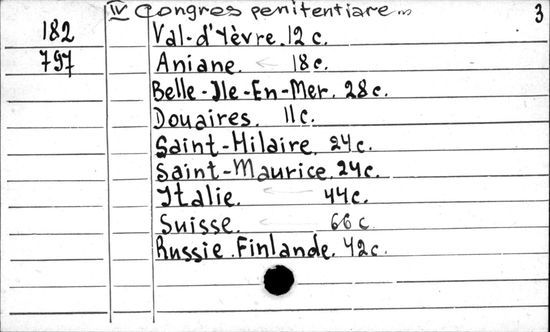 IV Congres penitentiare... 3
182 Val-d'Yèvre. 12 c.
797 Aniane. 18 c.
Belle-Ile-En-Mer. 28 c.
Douaires. 11 c.
Saint-Hilaire. 24 c.
Saint-Maurice. 24 c.
Italie. 44 c.
Suisse. 66 c
Russie. Finlande. 42 c.